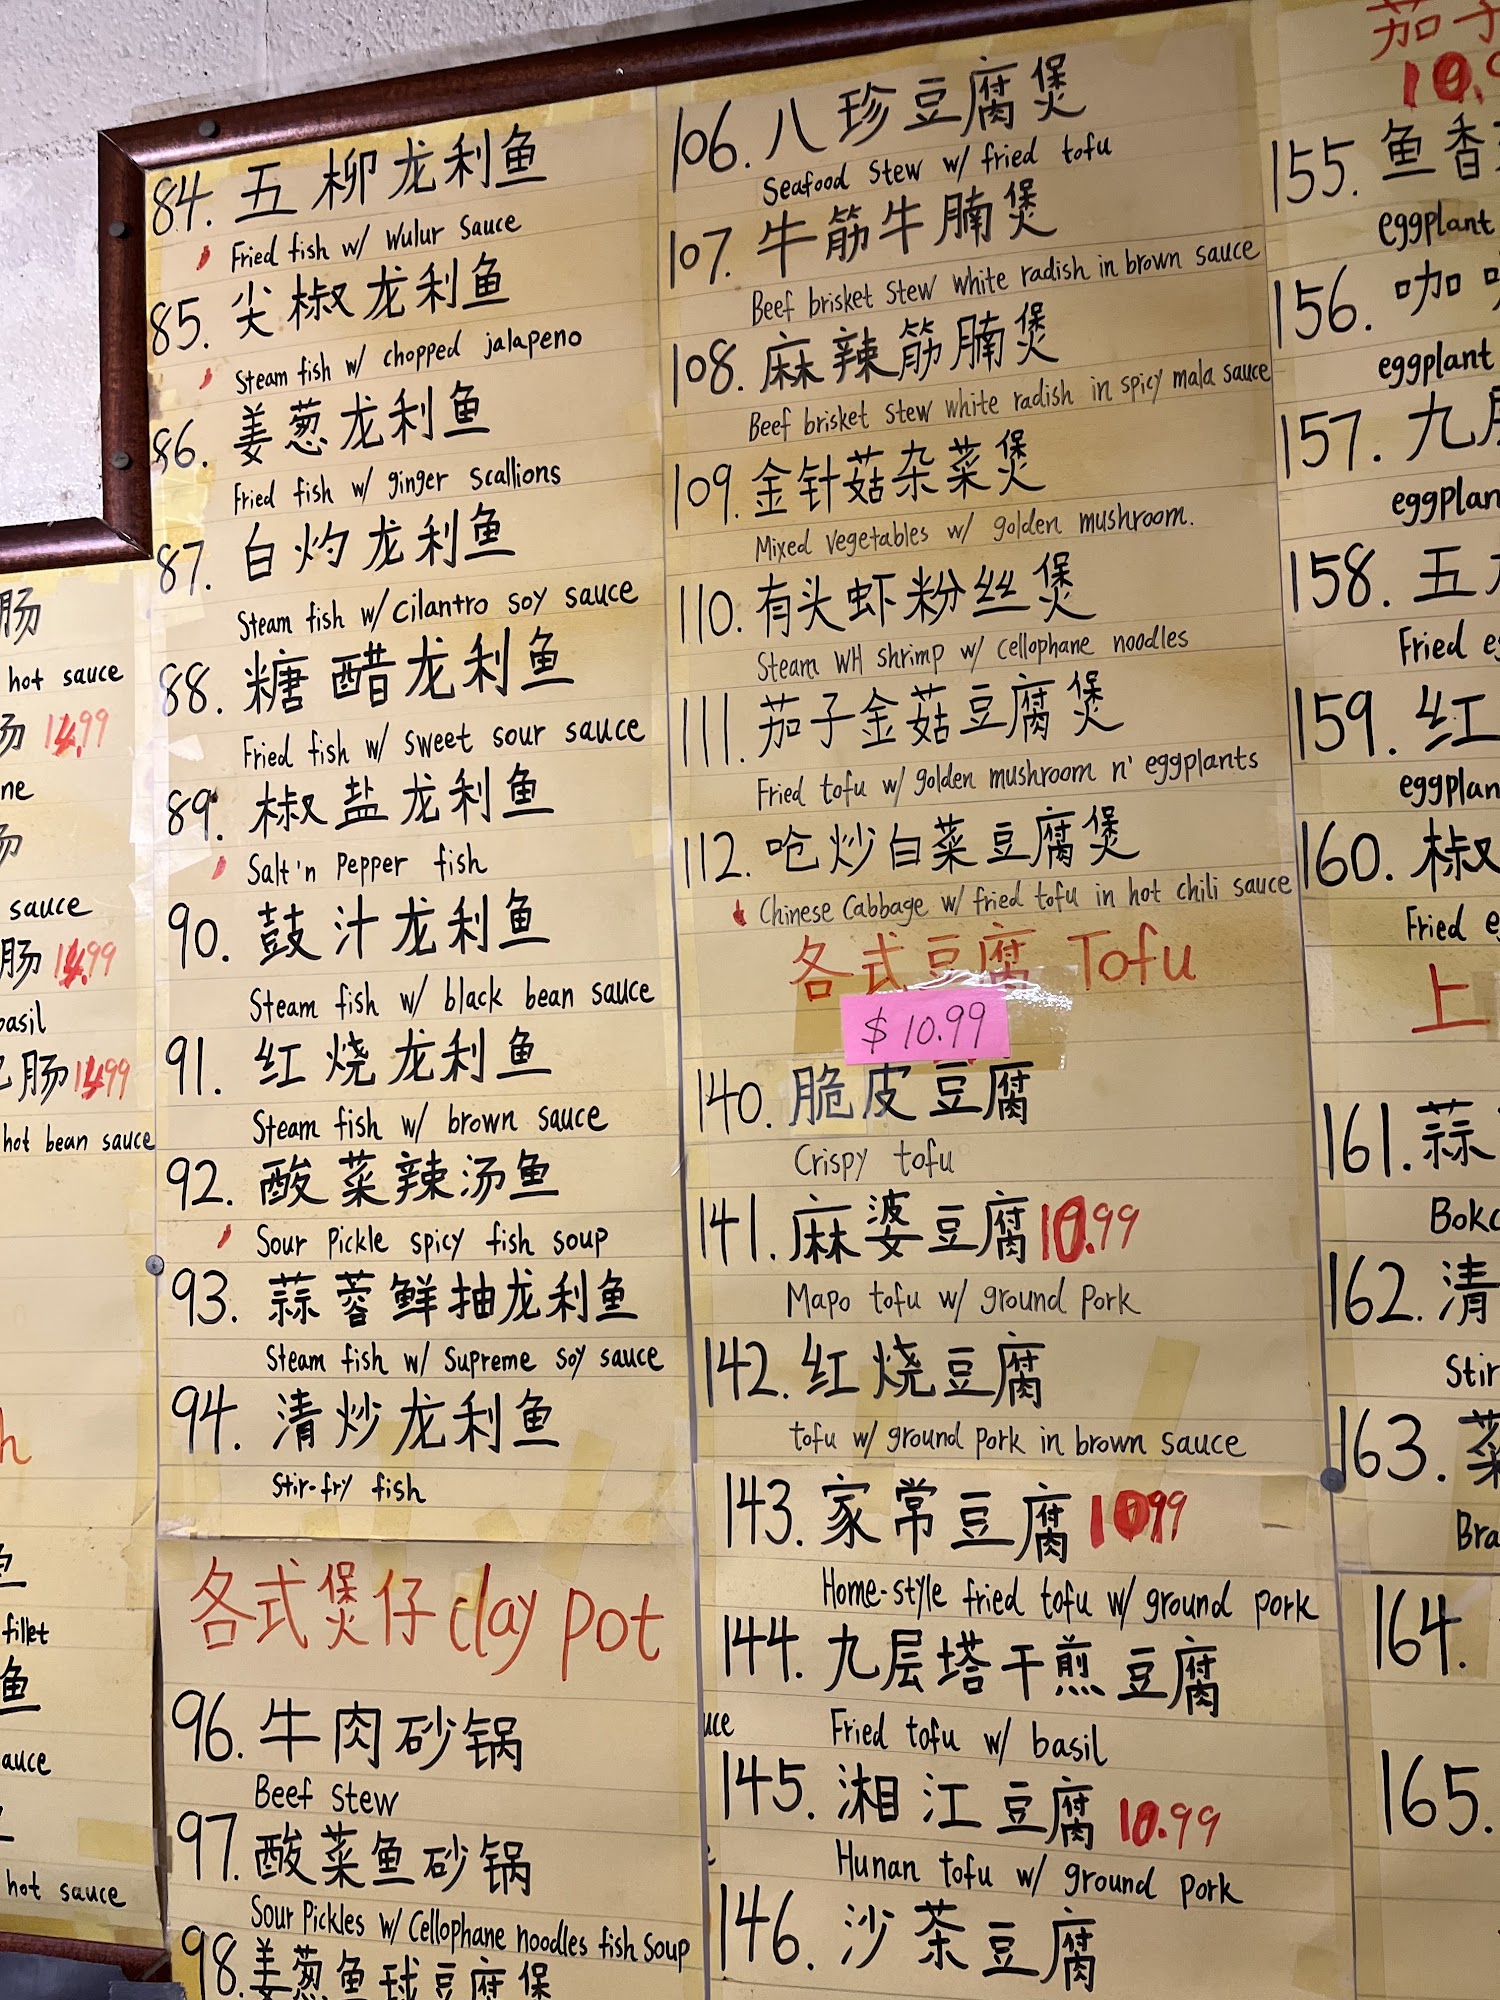 肠
hot sauce
肠 14.99
ne
sauce
肠 14.99
basil
肠 14.99
hot bean sauce
h
fillet
鱼
auce
hot sauce
84. 五柳龙利鱼
Fried fish w/ Wulur Sauce
85. 尖椒龙利鱼
Steam fish w/ chopped jalapeno
86. 姜葱龙利鱼
Fried fish w/ ginger scallions
87. 白灼龙利鱼
Steam fish w/ cilantro soy sauce
88. 糖醋龙利鱼
Fried fish w/ sweet sour sauce
89. 椒盐龙利鱼
Salt'n Pepper fish
90. 鼓汁龙利鱼
Steam fish w/ black bean sauce
91. 红烧龙利鱼
Steam fish w/ brown sauce
92. 酸菜辣汤鱼
Sour Pickle spicy fish soup
93. 蒜蓉鲜抽龙利鱼
Steam fish w/ Supreme soy sauce
94. 清炒龙利鱼
Stir-fry fish
各式煲仔 clay pot
96. 牛肉砂锅
Beef stew
97. 酸菜鱼砂锅
Sour Pickles w/ Cellophane noodles fish Soup
98. 姜葱鱼球豆腐煲
106. 八珍豆腐煲
Seafood Stew w/ fried tofu
107. 牛筋牛腩煲
Beef brisket Stew white radish in brown sauce
108. 麻辣筋腩煲
Beef brisket Stew white radish in spicy mala sauce
109. 金针菇杂菜煲
Mixed Vegetables w/ golden mushroom.
110. 有头虾粉丝煲
Steam WH shrimp w/ cellophane noodles
111. 茄子金菇豆腐煲
Fried tofu w/ golden mushroom n' eggplants
112. 呛炒白菜豆腐煲
Chinese Cabbage w/ fried tofu in hot chili sauce
各式豆腐 Tofu
$10.99
140. 脆皮豆腐
Crispy tofu
141. 麻婆豆腐 10.99
Mapo tofu w/ ground pork
142. 红烧豆腐
tofu w/ ground pork in brown sauce
143. 家常豆腐 10.99
Home-style fried tofu w/ ground pork
144. 九层塔干煎豆腐
uce
Fried tofu w/ basil
145. 湘江豆腐 10.99
Hunan tofu w/ ground pork
146. 沙茶豆腐
茄子
10.9
155. 鱼香
eggplant
156. 咖
eggplant
157. 九层
eggplan
158. 五
Fried eg
159. 红
eggplan
160. 椒
Fried e
上
161. 蒜
Bokc
162. 清
Stir
163. 菜
Bra
164.
165.